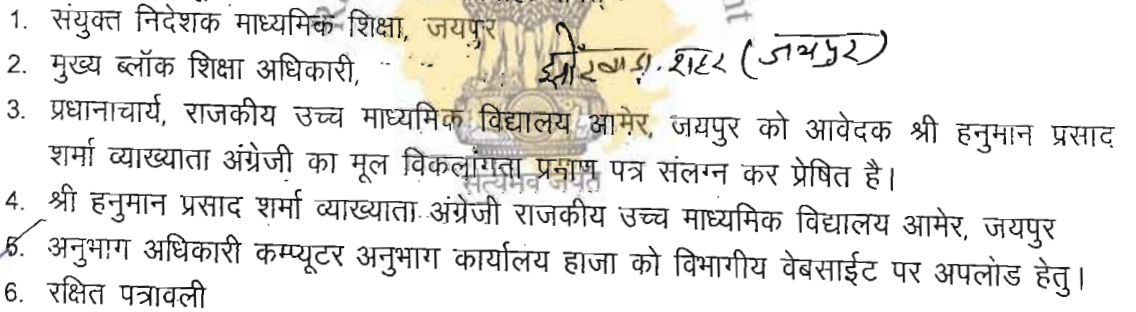 1. संयुक्त निदेशक माध्यमिक शिक्षा, जयपुर
2. मुख्य ब्लॉक शिक्षा अधिकारी, झोटवाड़ा शहर (जयपुर)
3. प्रधानाचार्य, राजकीय उच्च माध्यमिक विद्यालय आमेर, जयपुर को आवेदक श्री हनुमान प्रसाद
शर्मा व्याख्याता अंग्रेजी का मूल विकलांगता प्रमाण पत्र संलग्न कर प्रेषित है।
सत्यमेव जयते
4. श्री हनुमान प्रसाद शर्मा व्याख्याता अंग्रेजी राजकीय उच्च माध्यमिक विद्यालय आमेर, जयपुर
5. अनुभाग अधिकारी कम्प्यूटर अनुभाग कार्यालय हाजा को विभागीय वेबसाईट पर अपलोड हेतु।
6. रक्षित पत्रावली